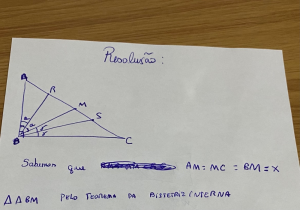 Resolução:
A
R
M
S
B
C
Sabemos que AM = MC = BM = X
Δ ABM PELO TEOREMA DA BISSETRIZ INTERNA